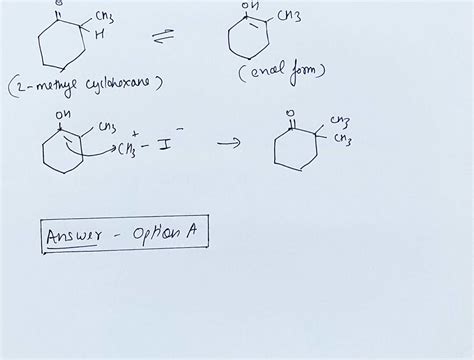 O OH
CH3 CH3
H
(2-methyl cyclohoxane) (enol form)
OH O
CH3 CH3
CH3 + - I - → CH3
Answer - Option A